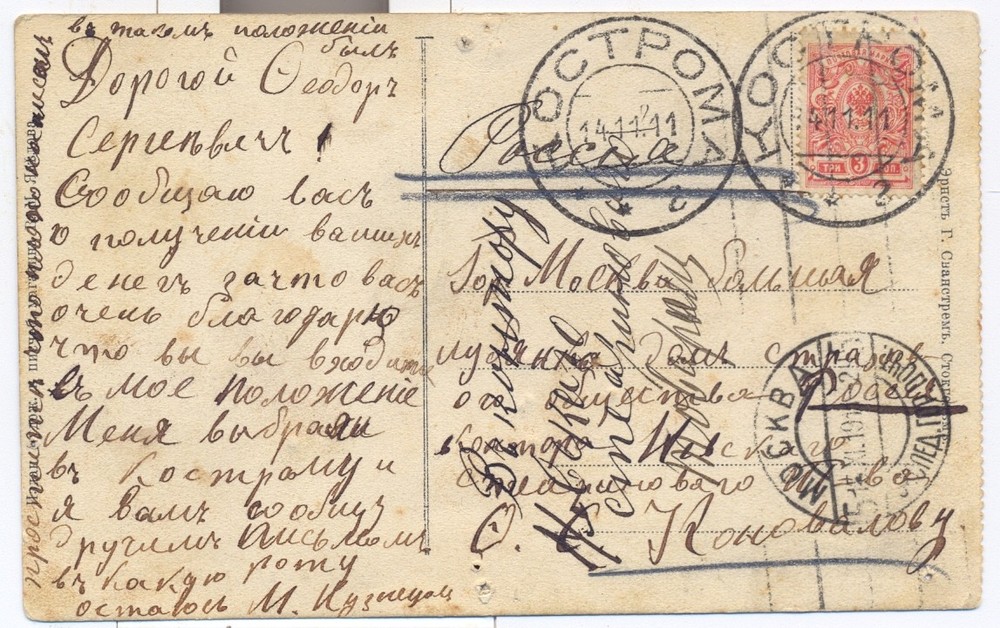 въ такомъ положеніи
былъ
Дорогой Ѳеодоръ
Сергѣевичъ!
Сообщаю васъ
о полученіи вашихъ
денегъ зачто васъ
очень благодарю
что вы вы входите
въ мое положеніе
Меня выбрали
въ Кострому и
я вамъ сообщу
другимъ письмомъ
въ какую роту
остаюсь М. Кузнецовъ
КОСТРОМА
14.11.11
2
КОСТРОМА
14.11.11
2
ТРИ 3 КОП.
Россія
Го Москва большая
домъ страхов
ого общества Россія
контора Невскаго
Стеариноваго т-ва
Ѳ. С. Коновалову
въ контору
Невскаго
стеариноваго
МОСКВА
Эрнстъ Г. Сванстремъ, Стокгольмъ